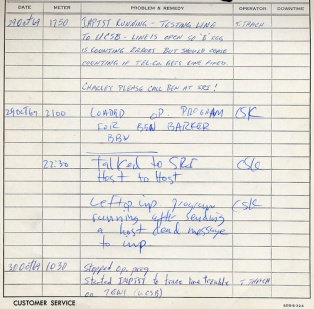 DATE METER PROBLEM & REMEDY OPERATOR DOWNTIME
29 Oct 69 1250 IAPTST RUNNING - TESTING LINE T. THACH
TO UCSB - LINE IS OPEN SO "B" REG
IS COUNTING ERRORS BUT SHOULD
COUNTING IF TELCO GETS LINE FIXED
CHARLEY PLEASE CALL BEN AT SRI!
29 Oct 69 2100 LOADED OP. PROGRAM CSK
FOR BEN BARKER
BBN
22:30 talked to SRI CSK
Host to Host
Left op. imp. program CSK
running after sending
a host dead message
to imp.
30 Oct 69 1030 Stopped op. prog
Started IAPTST to trace line trouble T. THACH
UCSB)
CUSTOMER SERVICE